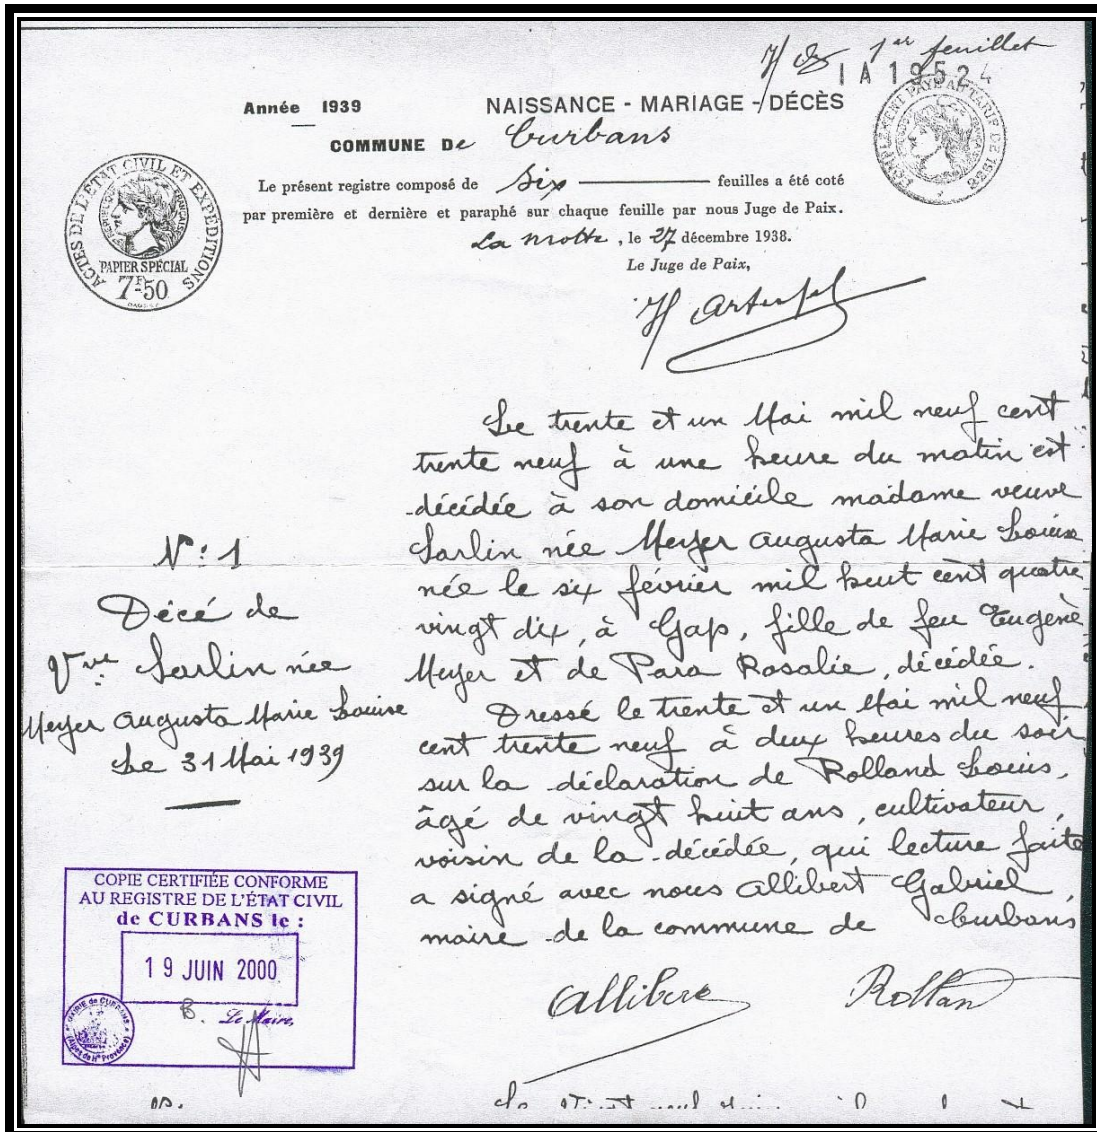 1er feuillet
IA 19524
Année 1939
NAISSANCE - MARIAGE - DÉCÈS
COMMUNE De Curbans
Le présent registre composé de six feuilles a été coté
par première et dernière et paraphé sur chaque feuille par nous Juge de Paix.
La Motte, le 27 décembre 1938.
Le Juge de Paix,
ACTES DE L'ÉTAT CIVIL ET EXPEDITIONS
REPUBLIQUE FRANÇAISE
PAPIER SPÉCIAL
7F50
COMPLÉMENT PAYÉ AU TARIF DE 1938
Le trente et un Mai mil neuf cent
trente neuf à une heure du matin est
décédée à son domicile madame veuve
Sarlin née Meyer Augusta Marie Louise
née le six février mil huit cent quatre
vingt dix, à Gap, fille de feu Eugène
Meyer et de Para Rosalie, décédée.
Dressé le trente et un Mai mil neuf
cent trente neuf à deux heures du soir
sur la déclaration de Rolland Louis,
âgé de vingt huit ans, cultivateur,
voisin de la décédée, qui lecture faite
a signé avec nous Allibert Gabriel,
maire de la commune de Curbans
Allibert
Rollan
N°: 1
Décé de
Vve Sarlin née
Meyer Augusta Marie Louise
Le 31 Mai 1939
COPIE CERTIFIÉE CONFORME
AU REGISTRE DE L'ÉTAT CIVIL
de CURBANS le :
19 JUIN 2000
Le Maire,
MAIRIE de CURBANS
(Alpes de Hte Provence)